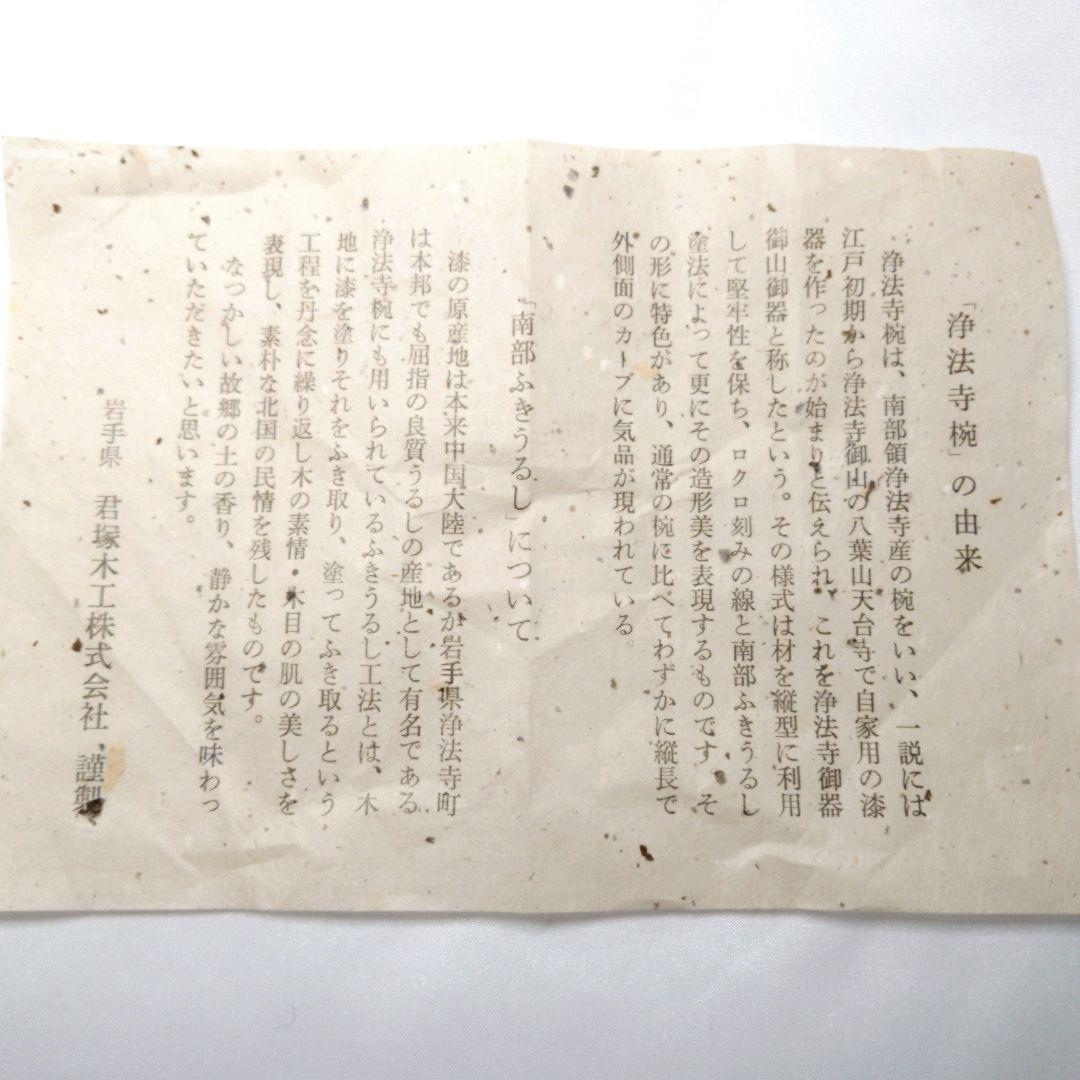 「浄法寺椀」の由来
浄法寺椀は、南部領浄法寺産の椀をいい、一説には
江戸初期から浄法寺御山の八葉山天台寺で自家用の漆
器を作ったのが始まりと伝えられ、これを浄法寺御器
御山御器と称したという。その様式は材を縦型に利用
して堅牢性を保ち、ロクロ刻みの線と南部ふきうるし
塗法によって更にその造形美を表現するものです。そ
の形に特色があり、通常の椀に比べてわずかに縦長で
外側面のカーブに気品が現われている。
「南部ふきうるし」について
漆の原産地は本来中国大陸であるが岩手県浄法寺町
は本邦でも屈指の良質うるしの産地として有名である
浄法寺椀にも用いられているふきうるし工法とは、木
地に漆を塗りそれをふき取り、塗ってふき取るという
工程を丹念に繰り返し木の素情・木目の肌の美しさを
表現し、素朴な北国の民情を残したものです。
なつかしい故郷の土の香り、静かな雰囲気を味わっ
ていただきたいと思います。
岩手県 君塚木工株式会社 謹製